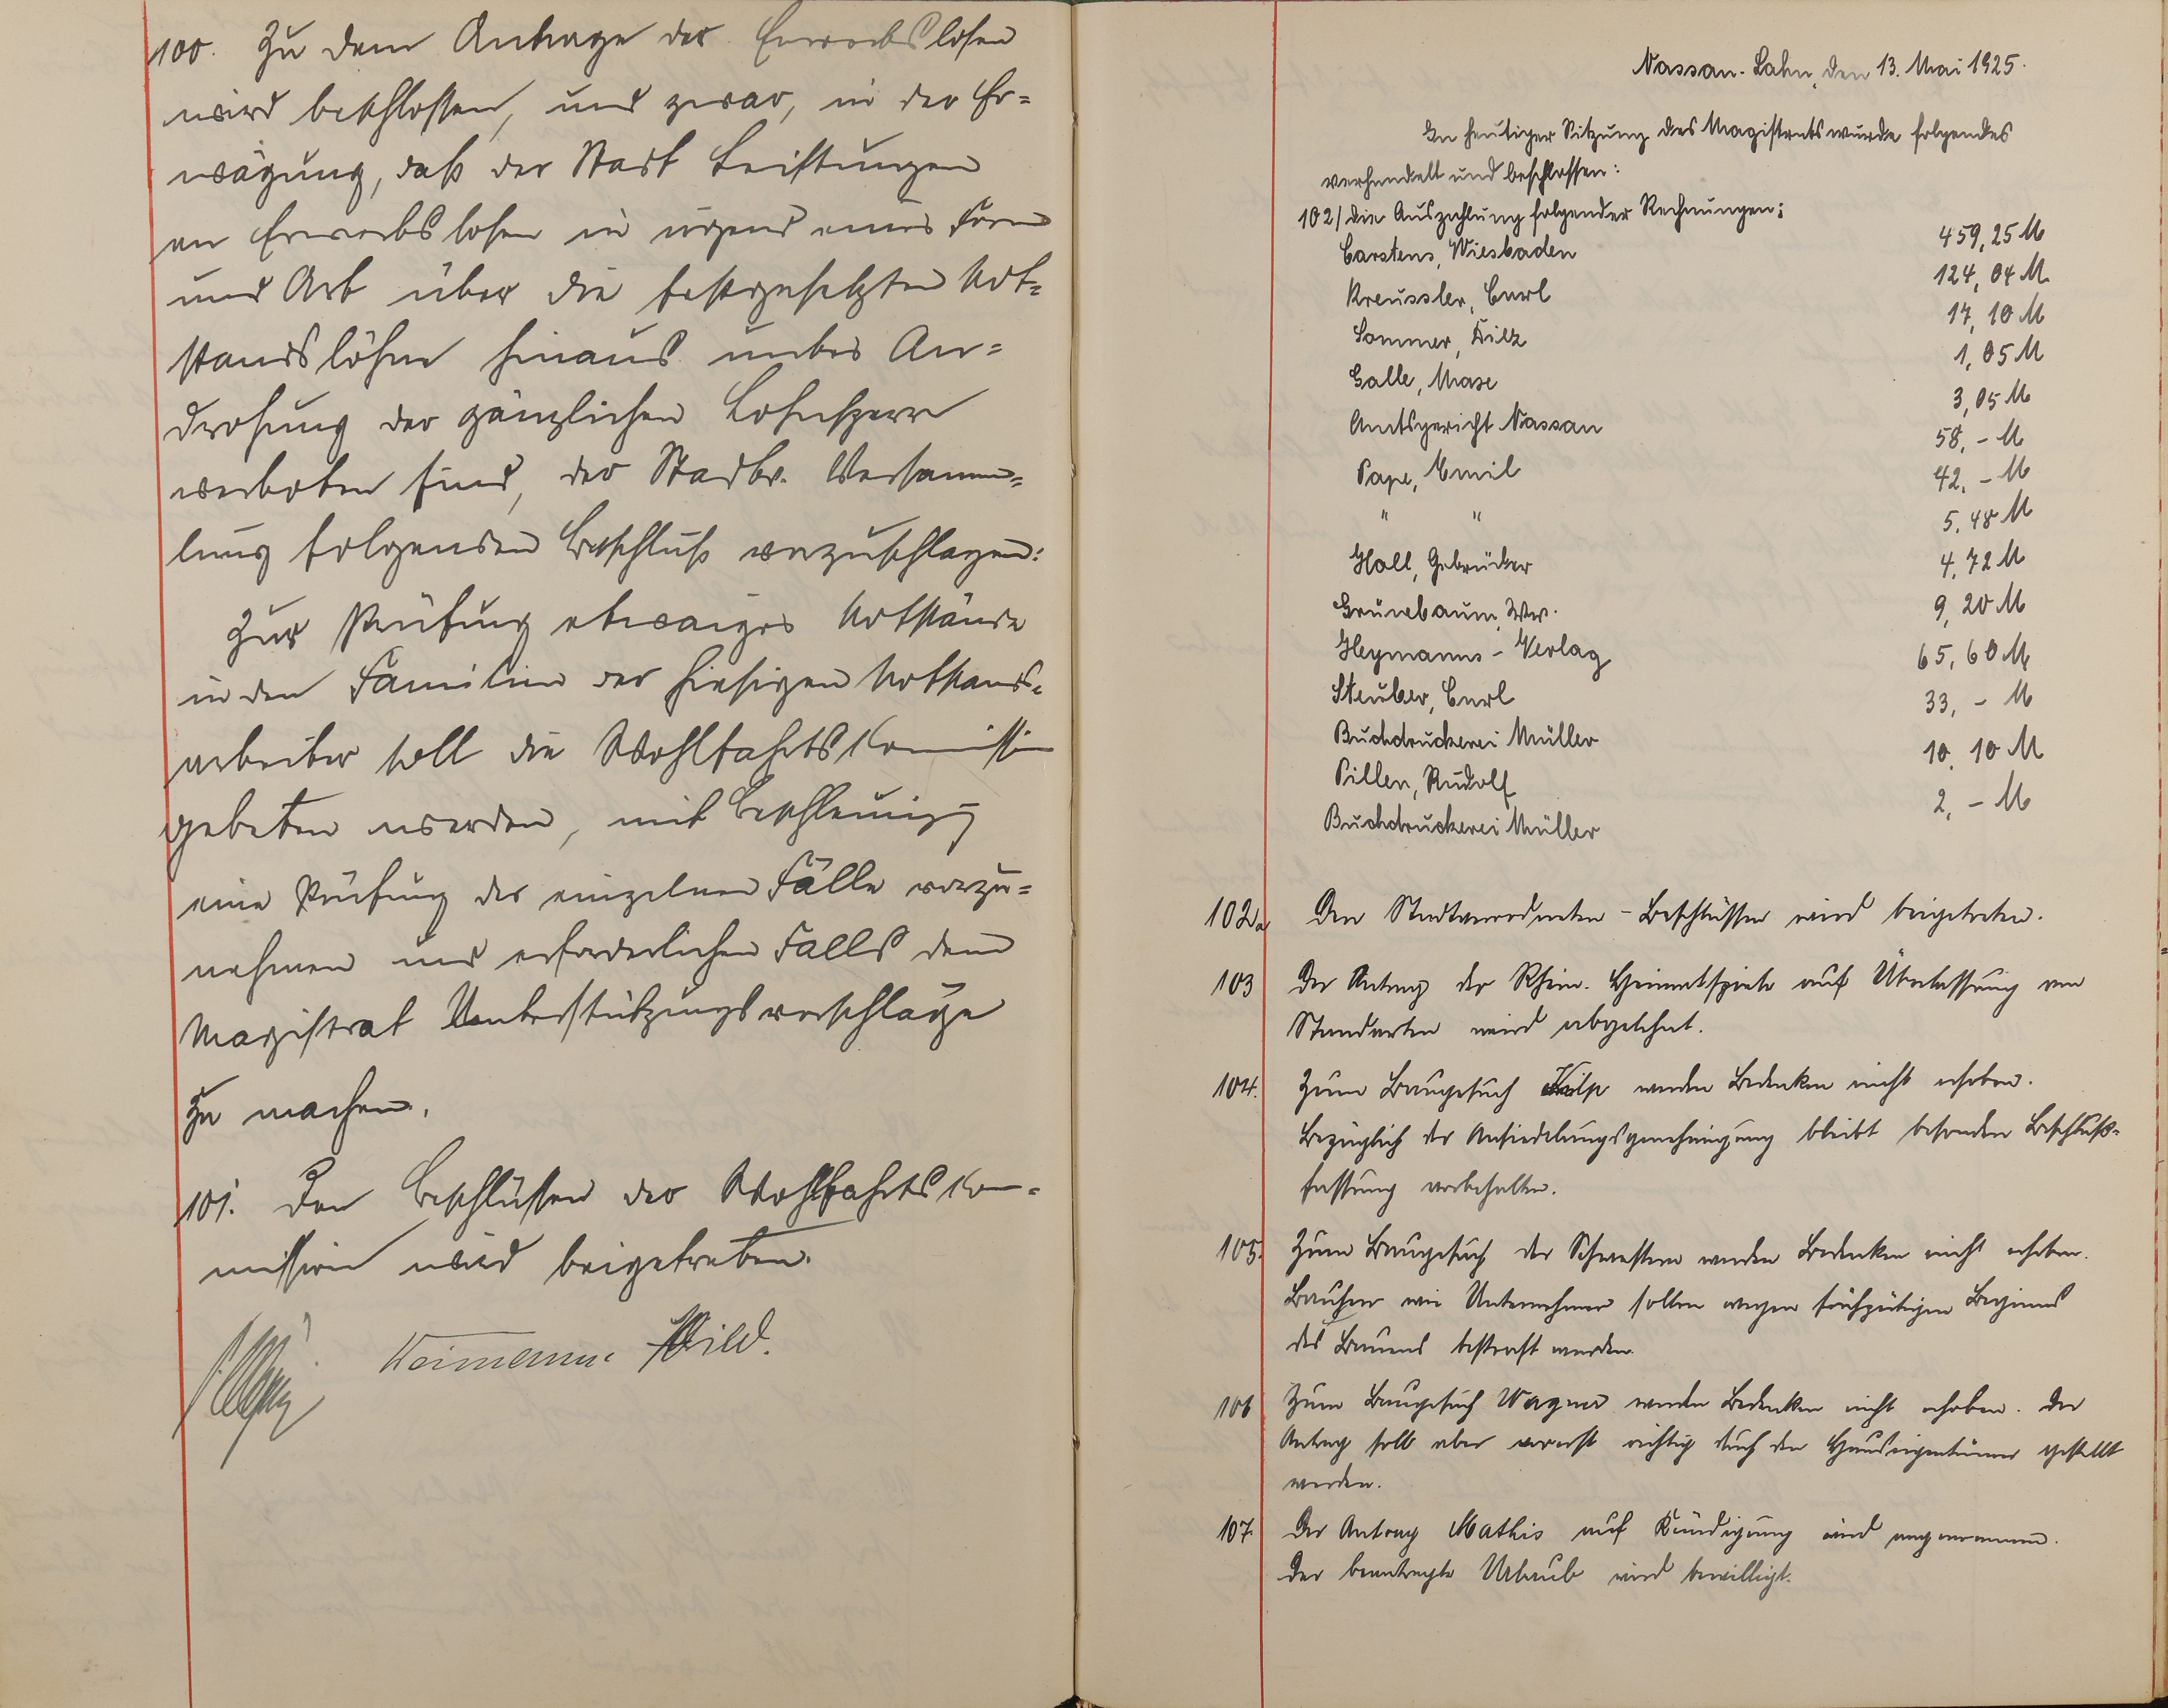 100. Zu dem Antrage der Erwerbslosen
wird beschlossen, und zwar, in der Er=
wägung, daß der Stadt Leistungen
an Erwerbslosen in irgend einer Form
und Art über die festgesetzten Not=
standslöhne hinaus unter An=
drohung der gänzlichen Lohnsperre
verboten sind, der Stadtv. Versamm=
lung folgenden Beschluß vorzuschlagen:
Zur Prüfung etwaiger Notstände
in den Familien der hiesigen Notstands=
arbeiter soll die Wohlfahrtskommission
gebeten werden, mit Beschleunigung
eine Prüfung der einzelnen Fälle vorzu=
nehmen und erforderlichen Falls dem
Magistrat Unterstützungsvorschläge
zu machen.
101. Den Beschlüssen der Wohlfahrtskom=
mission wird beigetreten.
Wild.
Nassau-Lahn, den 13. Mai 1925.
In heutiger Sitzung des Magistrats wurde folgendes
verhandelt und beschlossen:
102/ die Auszahlung folgender Rechnungen:
Carstens, Wiesbaden 459,25 M
Kreussler, Carl 124,04 M
Sommer, Diez 17,10 M
Galle, 1,05 M
Amtsgericht Nassau 3,05 M
Pape, Emil 58,- M
" " 42,- M
Holl, Gebrüder 5,48 M
Grünebaum, Ww. 4,72 M
Heymanns-Verlag 9,20 M
Steuber, Carl 65,60 M
Buchdruckerei Müller 33,- M
Piller, Rudolf 10,10 M
Buchdruckerei Müller 2,- M
102a Den Stadtverordneten-Beschlüssen wird beigetreten.
103 Der Antrag der Rhein. Heimatspiele auf Überlassung von
Standarten wird abgelehnt.
104. Zum Baugesuch Kilp werden Bedenken nicht erhoben.
Bezüglich der Ansiedelungsgenehmigung bleibt besondere Beschluß=
fassung vorbehalten.
105. Zum Baugesuch der Schwestern werden Bedenken nicht erhoben.
Bauherr wie Unternehmer sollen wegen frühzeitigen Beginns
des Bauens bestraft werden.
106 Zum Baugesuch Wagner werden Bedenken nicht erhoben. Der
Antrag soll aber vorerst richtig durch den Hauseigentümer gestellt
werden.
107 Der Antrag Mathis auf Kündigung wird angenommen.
Der beantragte Urlaub wird bewilligt.